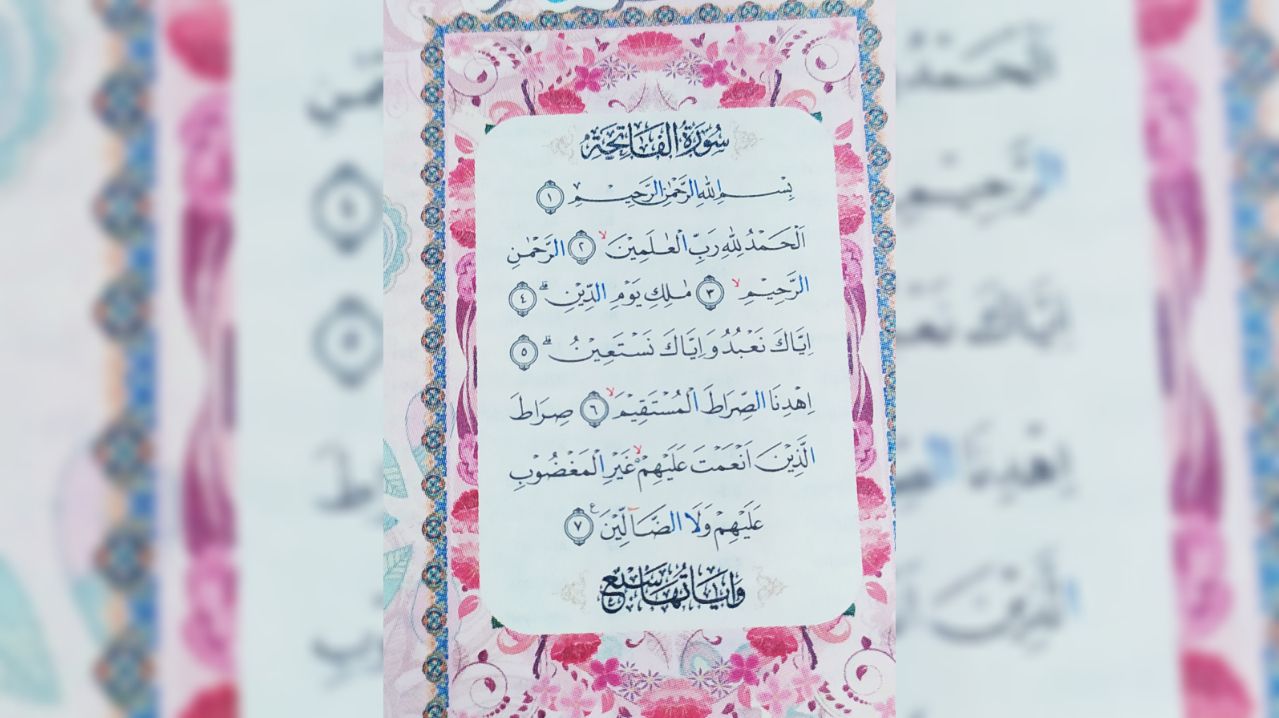 سُوْرَةُ الْفَاتِحَةِ
بِسْمِ اللّٰهِ الرَّحْمٰنِ الرَّحِيْمِ ۝١
اَلْحَمْدُ لِلّٰهِ رَبِّ الْعٰلَمِيْنَۙ ۝٢ الرَّحْمٰنِ
الرَّحِيْمِۙ ۝٣ مٰلِكِ يَوْمِ الدِّيْنِۗ ۝٤
اِيَّاكَ نَعْبُدُ وَاِيَّاكَ نَسْتَعِيْنُۗ ۝٥
اِهْدِنَا الصِّرَاطَ الْمُسْتَقِيْمَۙ ۝٦ صِرَاطَ
الَّذِيْنَ اَنْعَمْتَ عَلَيْهِمْ ەۙ غَيْرِ الْمَغْضُوْبِ
عَلَيْهِمْ وَلَا الضَّاۤلِّيْنَࣖ ۝٧
وَاٰيَاتُهَا سَبْعٌ